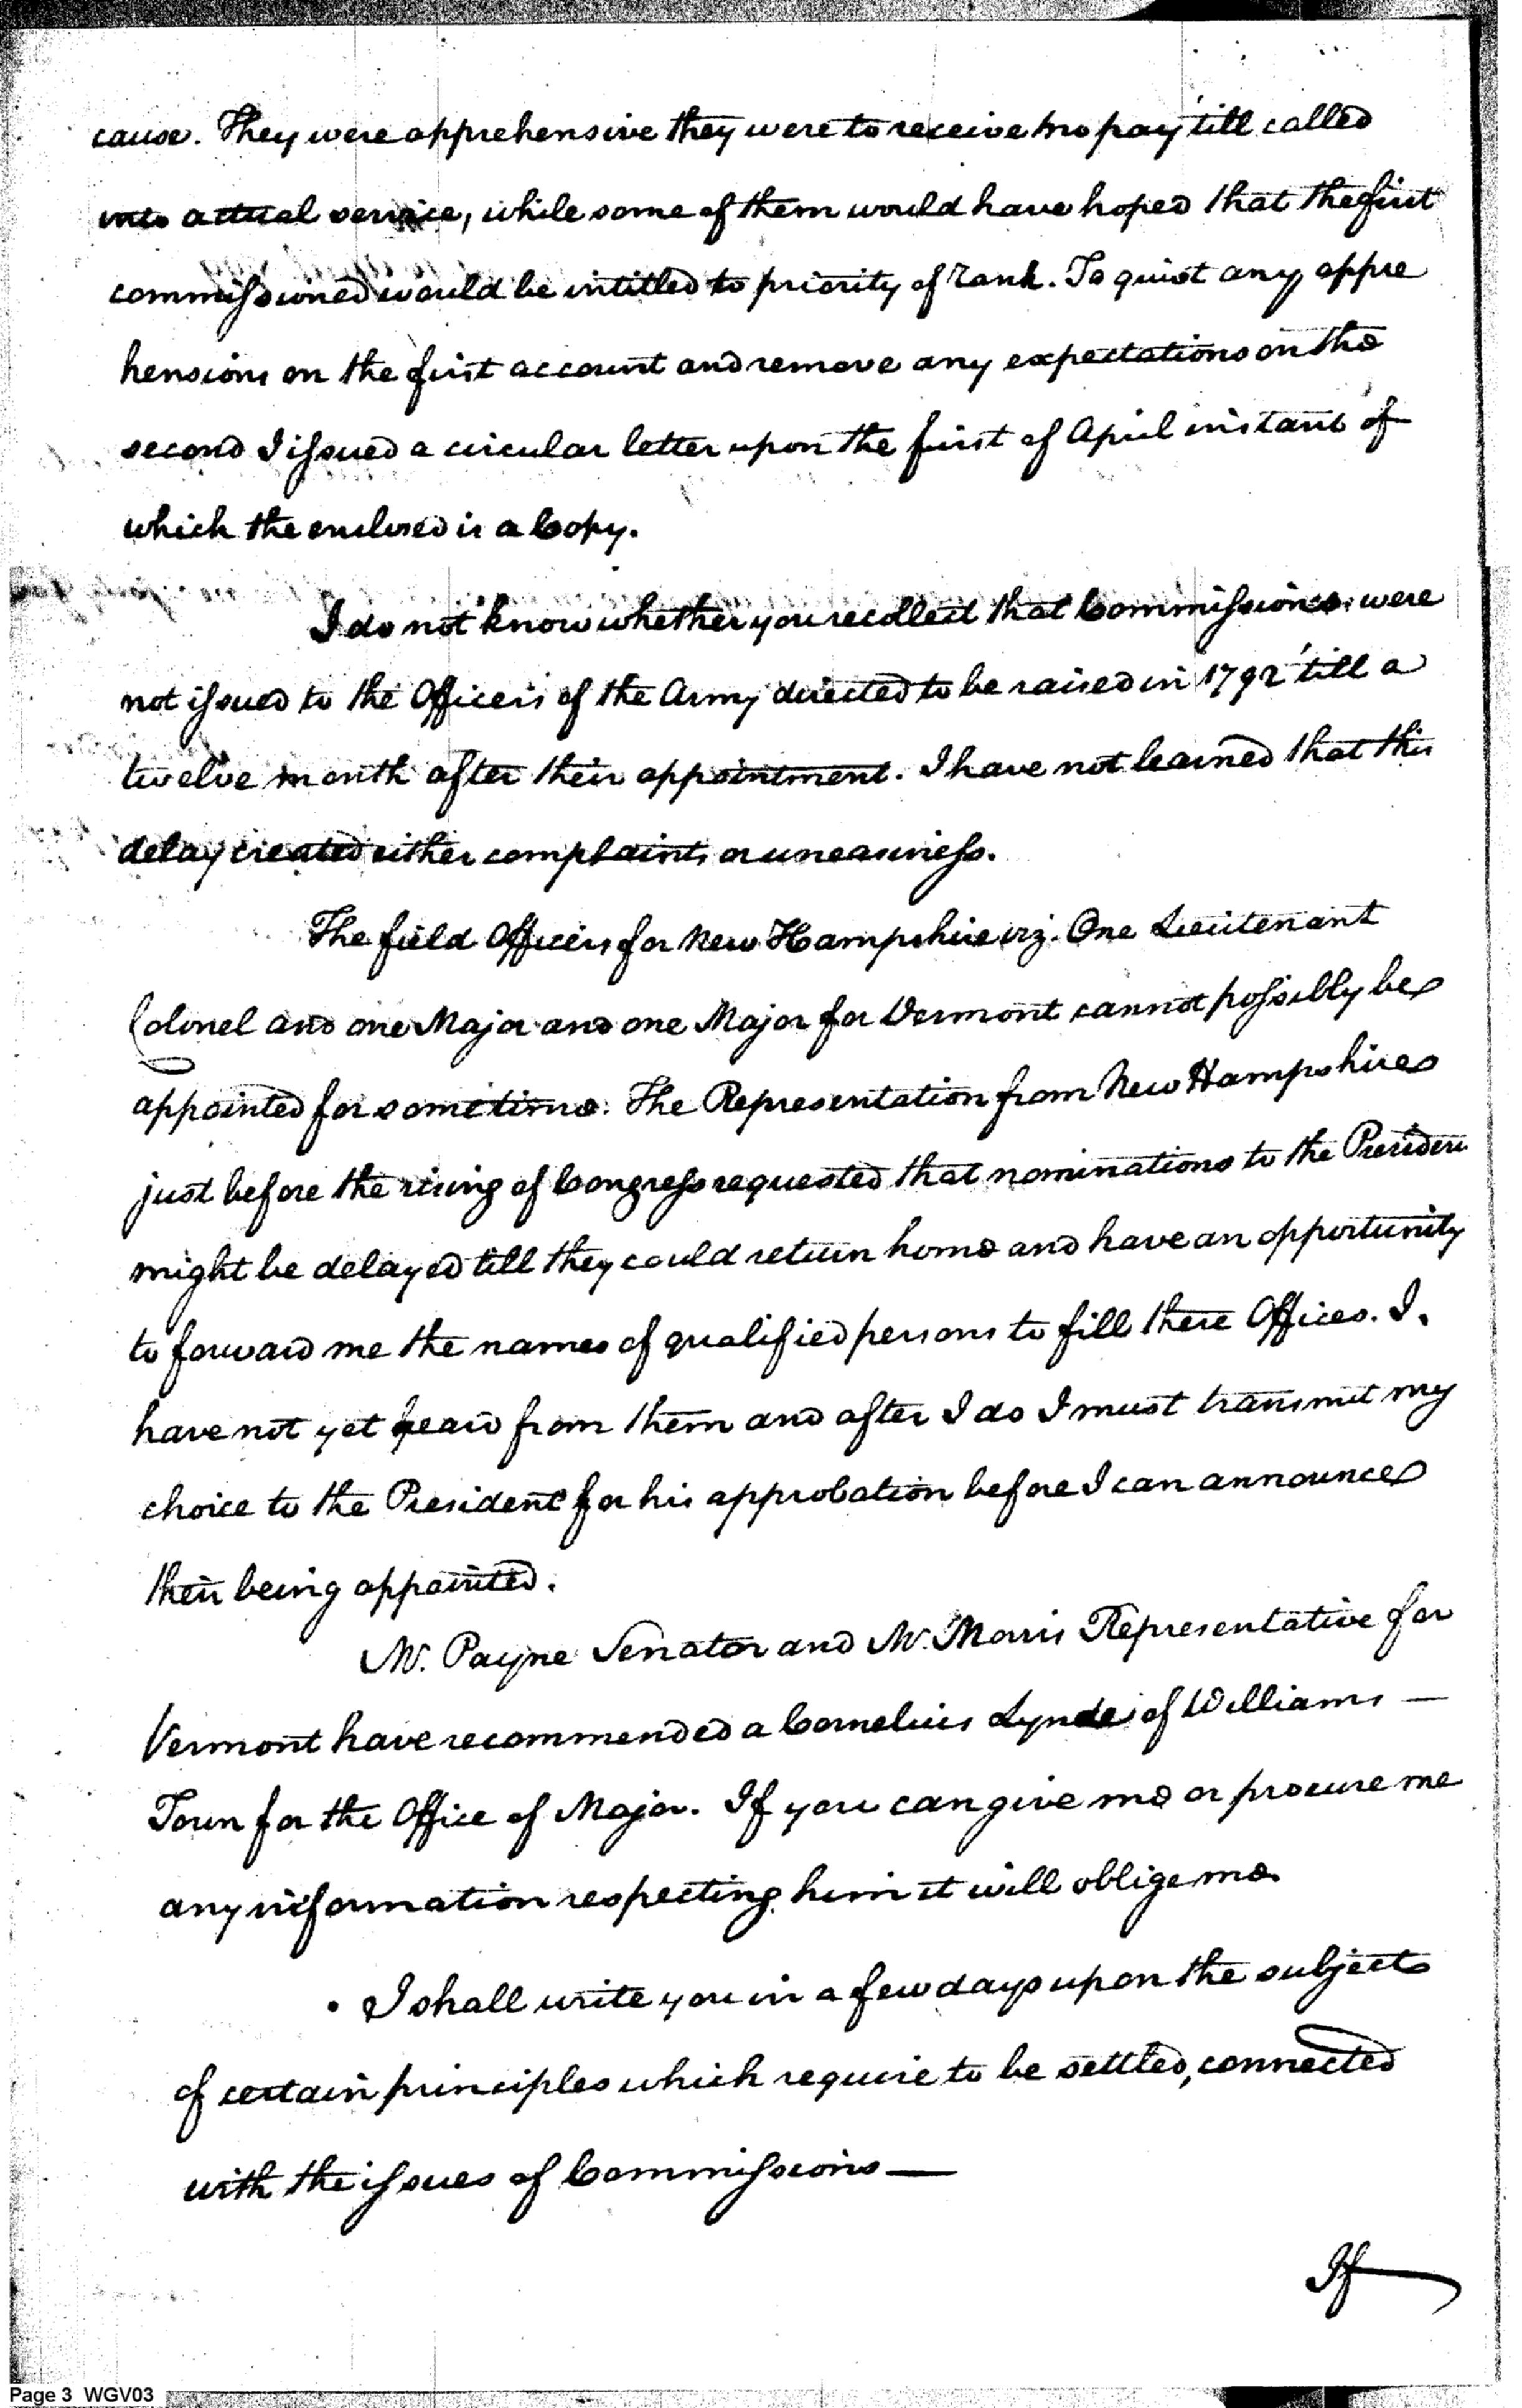 cause. They were apprehensive they were to receive no pay 'till called
into actual service, while some of them would have hoped that the first
commissioned would be intitled to priority of rank. To quiet any appre
hensions on the first account and remove any expectations on the
second I issued a circular letter upon the first of April instant of
which the enclosed is a Copy.
I do not know whether you recollect that Commissions were
not issued to the Officers of the Army directed to be raised in 1792 'till a
twelve month after their appointment. I have not learned that this
delay created either complaints or uneasiness.
The field Officers for New Hampshire viz. One Lieutenant
Colonel and one Major and one Major for Vermont cannot possibly be
appointed for sometime. The Representation from New Hampshire
just before the rising of Congress requested that nominations to the President
might be delayed till they could return home and have an opportunity
to forward me the names of qualified persons to fill these Offices. I
have not yet heard from them and after I do I must transmit my
choice to the President for his approbation before I can announce
their being appointed.
Mr. Payne Senator and Mr. Morris Representative for
Vermont have recommended a Cornelius Lynde of Williams —
Town for the Office of Major. If you can give me or procure me
any information respecting him it will oblige me.
I shall write you in a few days upon the subject
of certain principles which require to be settled, connected
with the issues of Commissions —
If
Page 3 WGV03